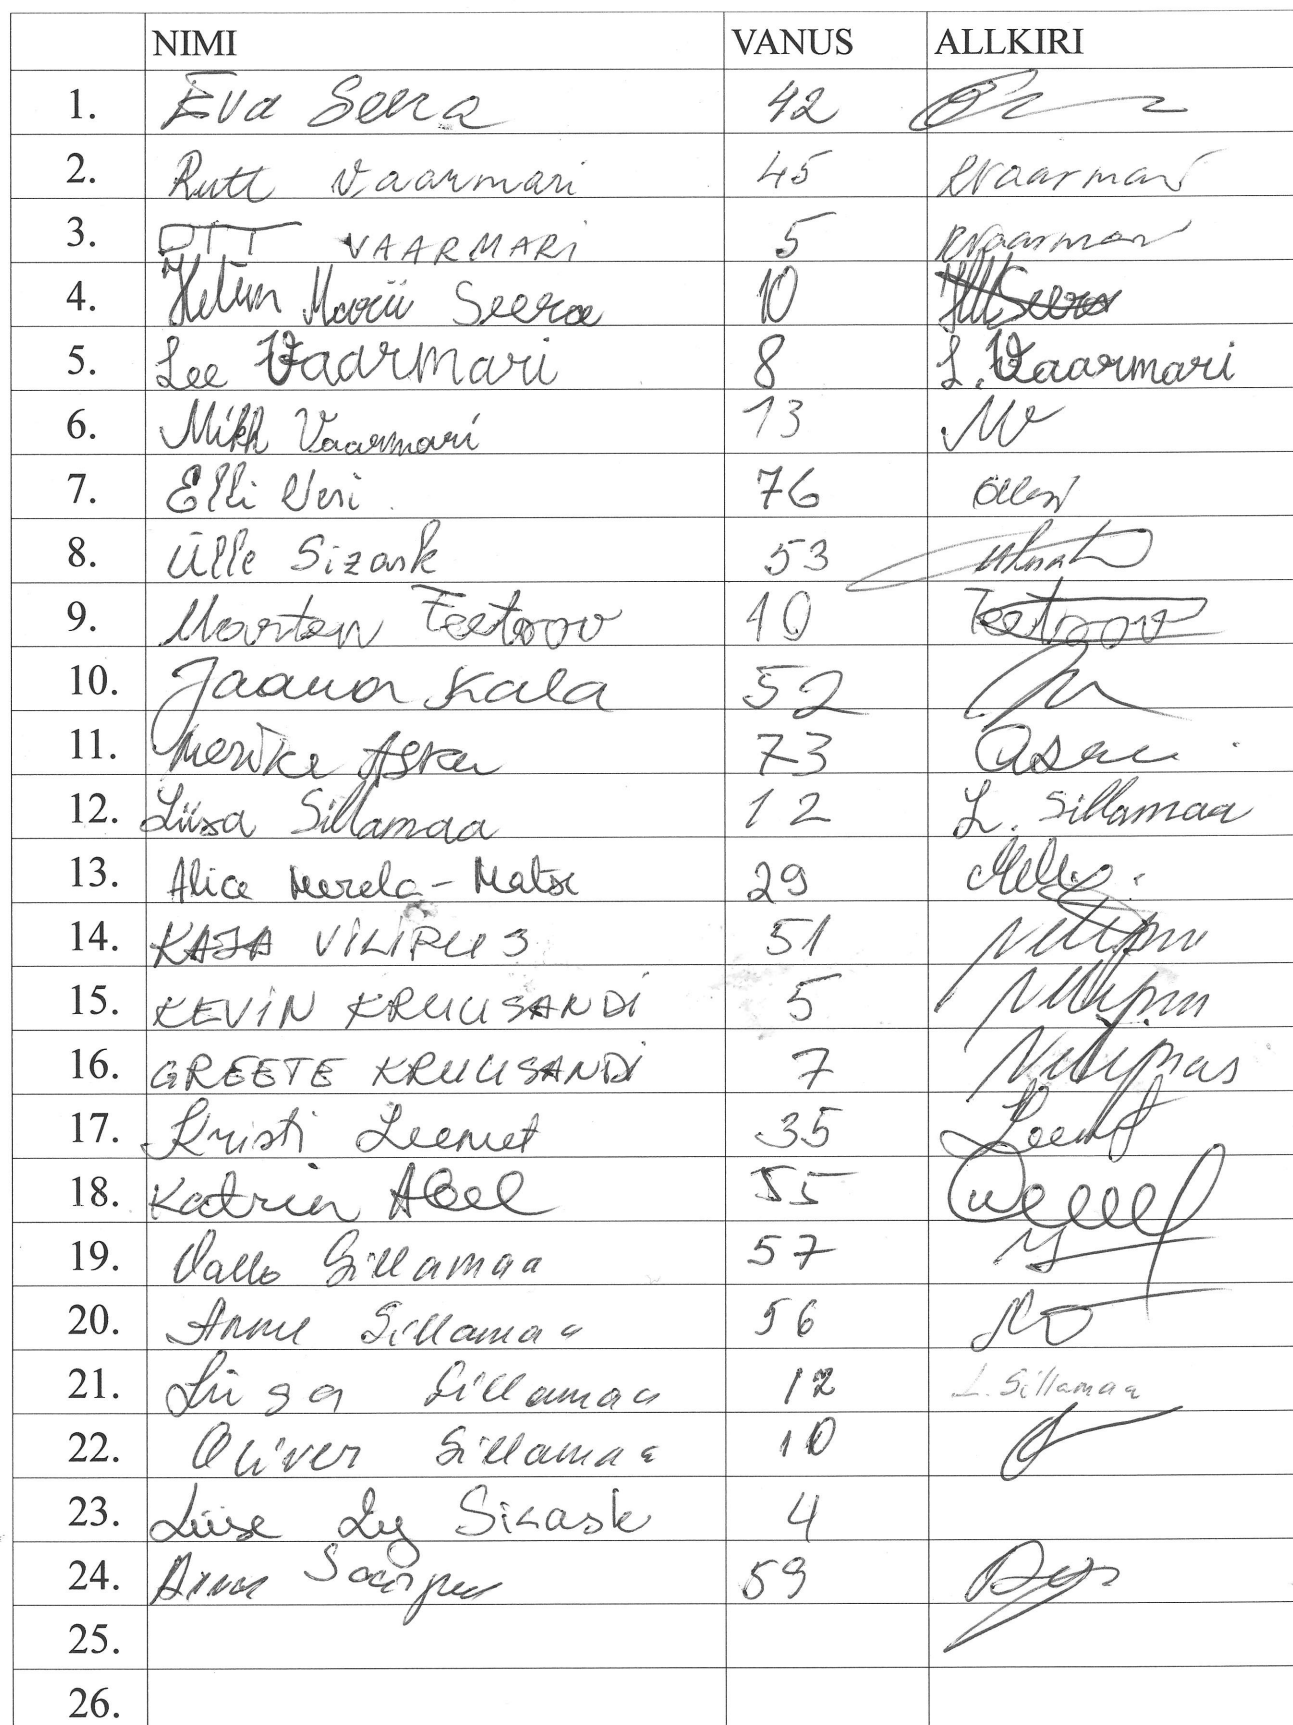 NIMI VANUS ALLKIRI
1. Eva Seera 42
2. Rutt Vaarmari 45 RVaarmari
3. OTT VAARMARI 5 RVaarmari
4. Helin Marii Seera 10 HMSeera
5. Lee Vaarmari 8 L. Vaarmari
6. Mikk Vaarmari 13 MV
7. Elli Veri 76
8. Ülle Sizask 53
9. Marten Teetsov 10 Teetsov
10. Jaana Kala 52
11. Merike 73
12. Liisa Sillamaa 12 L. Sillamaa
13. Alice Merela-Matsi 29
14. KAJA VILIPUUS 51
15. KEVIN KRUUSANDI 5
16. GREETE KRUUSANDI 7
17. Kristi Leemet 35 Leemet
18. Katrin Abel 55
19. Vallo Sillamaa 57
20. Anne Sillamaa 56
21. Liisa Sillamaa 12 L. Sillamaa
22. Oliver Sillamaa 10
23. Liise Ly Sizask 4
24. 59
25.
26.